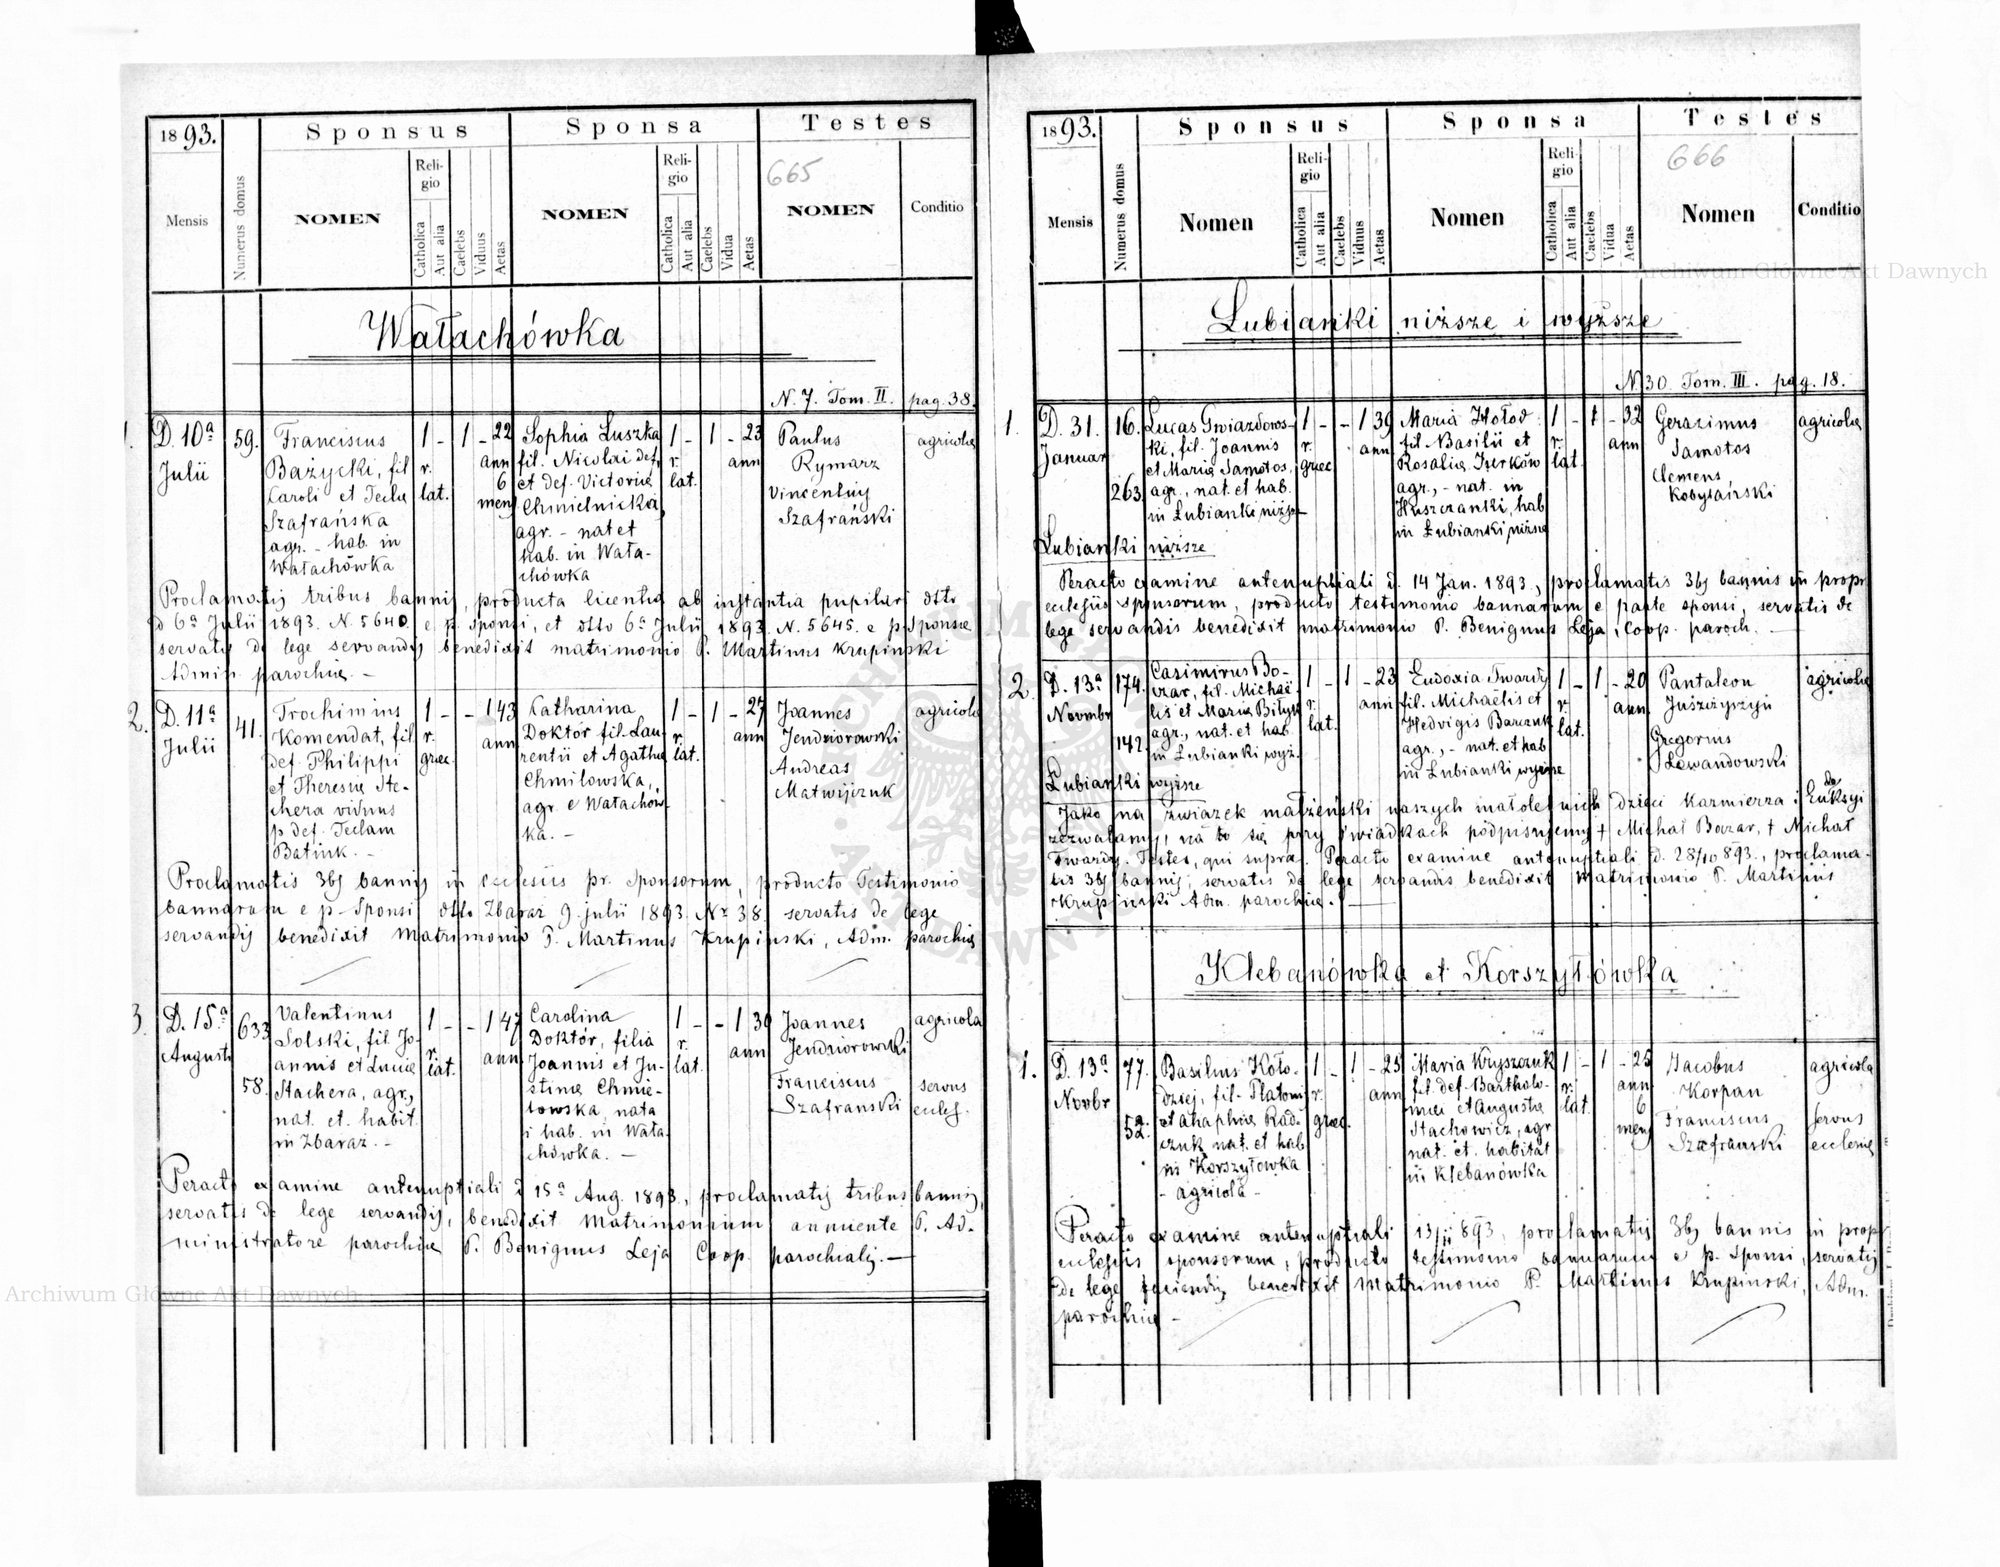 1893.
Sponsus
Sponsa
Testes
665
Mensis
Numerus domus
NOMEN
Reli-
gio
Catholica
Aut alia
Caelebs
Viduus
Aetas
NOMEN
Reli-
gio
Catholica
Aut alia
Caelebs
Vidua
Aetas
NOMEN
Conditio
Wałachówka
N. 7. Tom. II. pag. 38.
1.
D. 10ª
Julii
59.
Franciscus
Bażycki, fil
Caroli et Teclæ
Szafrańska
agr. - hab. in
Wałachówka
1 - 1 - 22
r.
lat.
ann
6
mens
Sophia Luszka
fil. Nicolai def.
et def. Victoriæ
Chmielnicka,
agr. - nat et
hab. in Wała-
chówka
1 - 1 - 23
r.
lat.
ann
Paulus
Rymarz
Vincentius
Szafrański
agricolæ
Proclamatis tribus bannis, producta licentia ab instantia pupilari dtto
d 6ª Julii 1893. N. 5640. e p. Sponsi, et dtto 6ª Julii 1893. N. 5645. e p. Sponsæ
servatis de lege servandis benedixit matrimonio P. Martinus Krupinski
Admin. parochiæ. -
2.
D. 11ª
Julii
41.
Trochimius
Komendat, fil
def. Philippi
et Theresiæ Ste-
chera viduus
p def. Teclam
Batiuk. -
1 - - 1 43
r.
græc.
ann
Katharina
Doktór fil. Lau-
rentii et Agathæ
Chmilowska,
agr. e Wałachów-
ka. -
1 - 1 - 27
r.
lat.
ann
Joannes
Jendziorowski
Andreas
Matwijczuk
agricolæ
Proclamatis 3bs bannis in ecclesiis pr. Sponsorum, producto Testimonio
bannorum e p. Sponsi dtto Zbaraż 9. julii 1893. Nr 38 servatis de lege
servandis benedixit Matrimonio P. Martinus Krupinski, Adm. parochiæ
3.
D. 15ª
Augusti
633
58.
Valentinus
Solski, fil. Jo-
annis et Luciæ
Stachera, agr.,
nat. et. habit.
in Zbaraż. -
1 - - 1 47
r.
lat.
ann
Carolina
Doktór, filia
Joannis et Ju-
stinæ Chmie-
lowska, nata
i hab. in Wała-
chówka. -
1 - - 1 30
r.
lat.
ann
Joannes
Jendziorowski
Franciscus
Szafranski
agricola
servus
eccles.
Peracto examine antenuptiali d 15ª Aug. 1893., proclamatis tribus bannis,
servatis de lege servandis, benedixit Matrimonium annuente P. Ad-
ministratore parochiæ P. Benignus Leja Coop. parochialis. -
1893.
Sponsus
Sponsa
Testes
666
Mensis
Numerus domus
Nomen
Reli-
gio
Catholica
Aut alia
Caelebs
Viduus
Aetas
Nomen
Reli-
gio
Catholica
Aut alia
Caelebs
Vidua
Aetas
Nomen
Conditio
Lubianki niższe i wyższe
N 30. Tom. III. pag. 18.
1.
D. 31.
Januar
16.
263.
Lubianki niższe
Lucas Gwiazdows-
ki, fil. Joannis
et Mariæ Samotos,
agr., nat. et hab.
in Łubianki niższe
1 - - 1 39
r.
græc
ann
Maria Hołod
fil. Basilii et
Rosaliæ Iserków
agr., - nat. in
Huszczanki, hab
in Łubianki niższe
1 - 1 - 32
r.
lat.
ann
Gerasimus
Samotos
Clemens,
Kobylański
agricolæ
Peracto examine antenuptiali d. 14 Jan. 1893., proclamatis 3bs bannis in propr
ecclesiis sponsorum, producto testimonio bannorum e parte sponsi, servatis de
lege servandis benedixit matrimonio P. Benignus Leja, Coop. paroch. -
2.
D. 13ª
Novmbr
174.
142.
Łubianki wyższe
Casimirus Bo-
czar, fil. Michaë-
lis et Mariæ Biłyk
agr., nat. et hab
in Łubianki wyż.
1 - 1 - 23
r.
lat.
ann
Eudoxia Twardy
fil. Michaëlis et
Hedvigis Barczuk
agr., - nat. et hab
in Łubianki wyższe
1 - 1 - 20
r.
lat.
ann
Pantaleon
Juszczyszyn
Gregorius
Lewandowski
agricolæ
Jako na związek małżeński naszych małoletnich dzieci Kazmierza i Eudoksyi
zezwalamy, na to się przy świadkach podpisujemy † Michał Boczar, † Michał
Twardy. Testes, qui supra. Peracto examine antenuptiali d. 28/10 893., proclama-
tis 3bs bannis, servatis de lege servandis benedixit Matrimonio P. Martinus
Krupinski Adm. parochiæ.
Klebanówka et Korszyłówka
1.
D. 13ª
Novbr
77.
52.
Basilius Koło-
dziej, fil. Platonis
et Ahaphiæ Rad-
czuk nat. et hab
in Korszyłowka
- agricola -
1 - 1 - 25
r.
græc.
ann
Maria Kryszczuk
fil. def. Bartholo-
mæi et Augustæ
Stachowicz, agr
nat. et. habitat
in Klebanówka
1 - 1 - 25
r.
lat.
ann
6
mens
Jacobus
Korpan
Franciscus
Szafranski
agricola
servus
ecclesiæ
Peracto examine antenuptiali 13/11 893, proclamatis 3bs bannis in propr
ecclesiis sponsorum, producto testimonio bannorum e p. Sponsi, servatis
de lege benedixit Matrimonio P. Martinus Krupinski, Adm.
parochiæ -
Archiwum Główne Akt Dawnych
Archiwum Główne Akt Dawnych